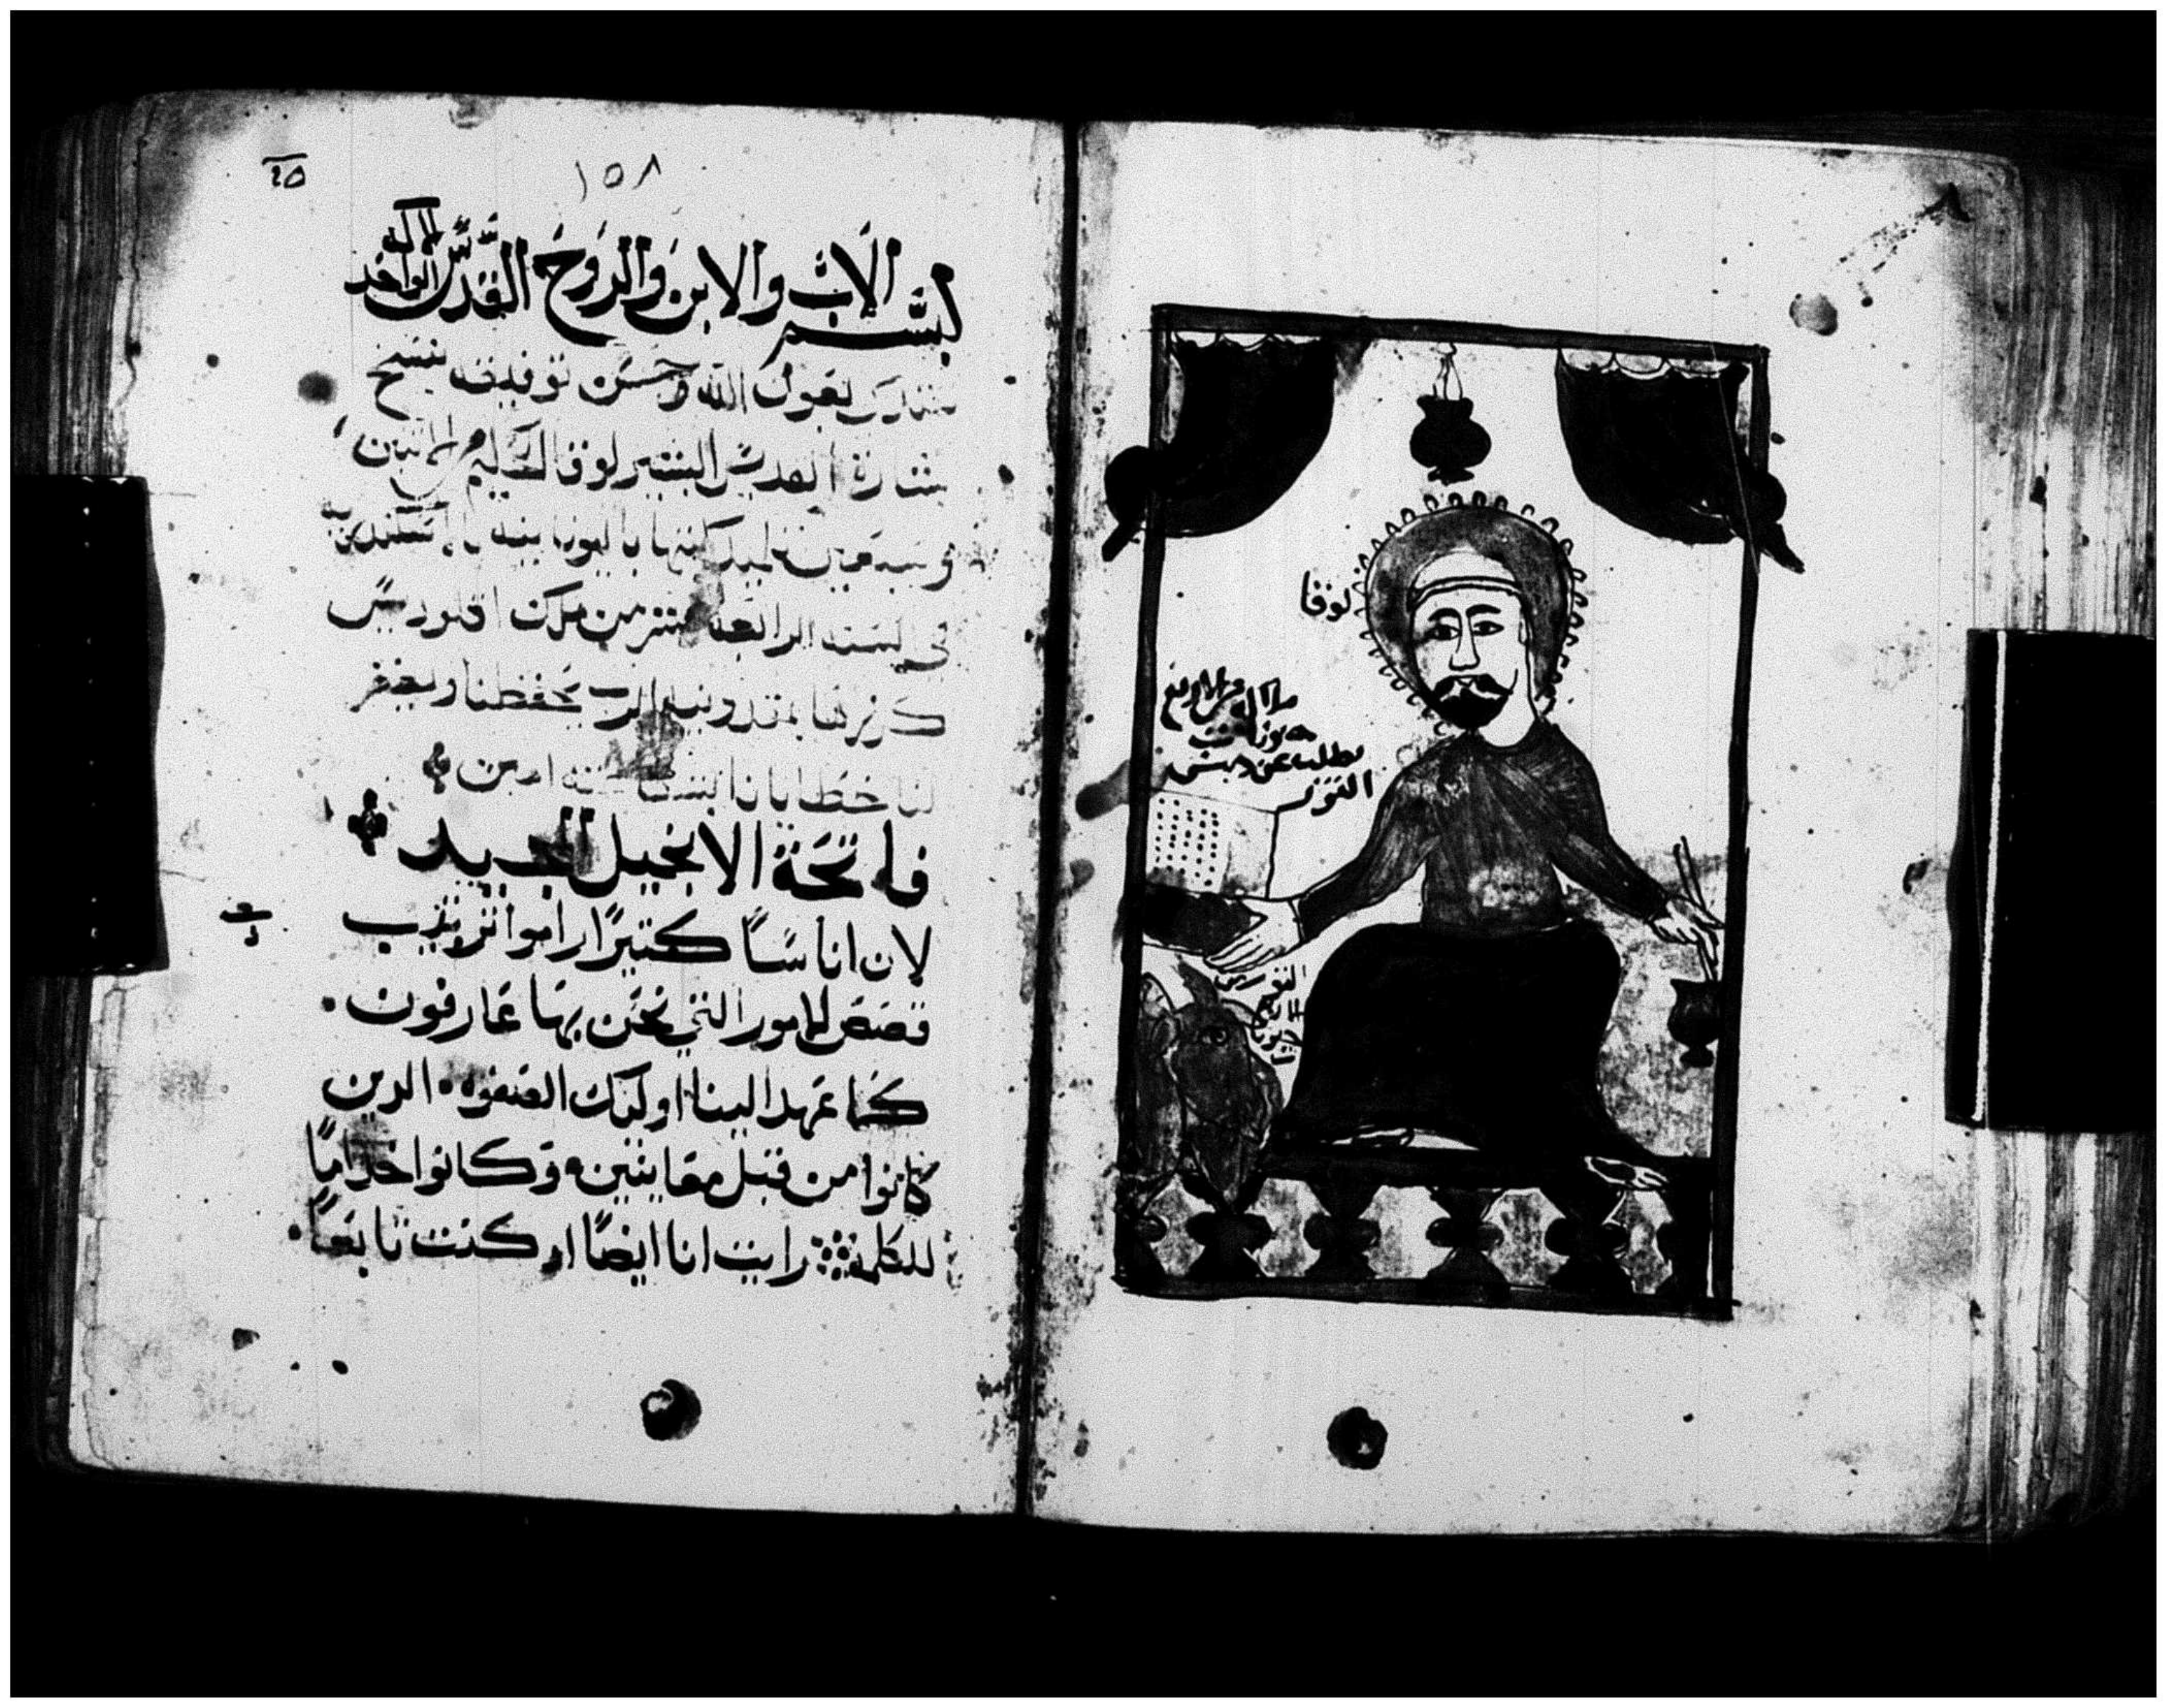 ١٥٨
بسم الاب والابن والروح القدس الاله الواحد
نبتدي بعون الله وحسن توفيقه بنسخ
بشارة القديس البشير لوقا الحكيم
وسبعين تلميد كتبها باليونانيه
في السنه الرابعه عشر من ملك اقلوديس
كرز بها بمقدونيه الرب يحفظنا ويغفر
لنا خطايانا امين
فاتحة الانجيل المجيد
لان اناسًا كتيرًا راموا ترتيب
قصص الامور التي نحن بها عارفون.
كما عهد الينا اوليك الصفوه الدين
كانوا من قبل معاينين وكانوا خدامًا
للكلمة رايت انا ايضًا اد كنت تابعًا
لوقا
يطلب عن جنس
التور